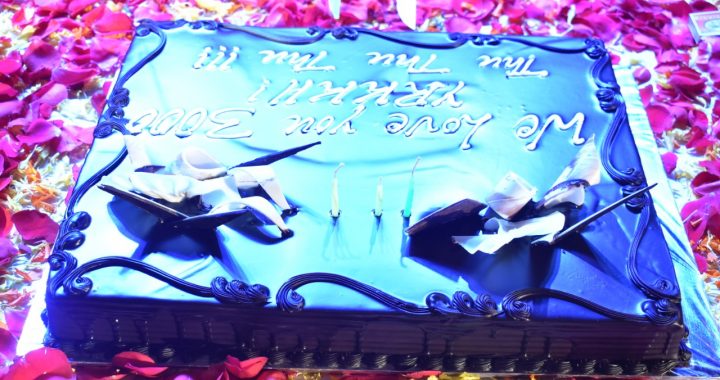 We Love you 3000
YRKKH!
Thu Thu Thu !!!